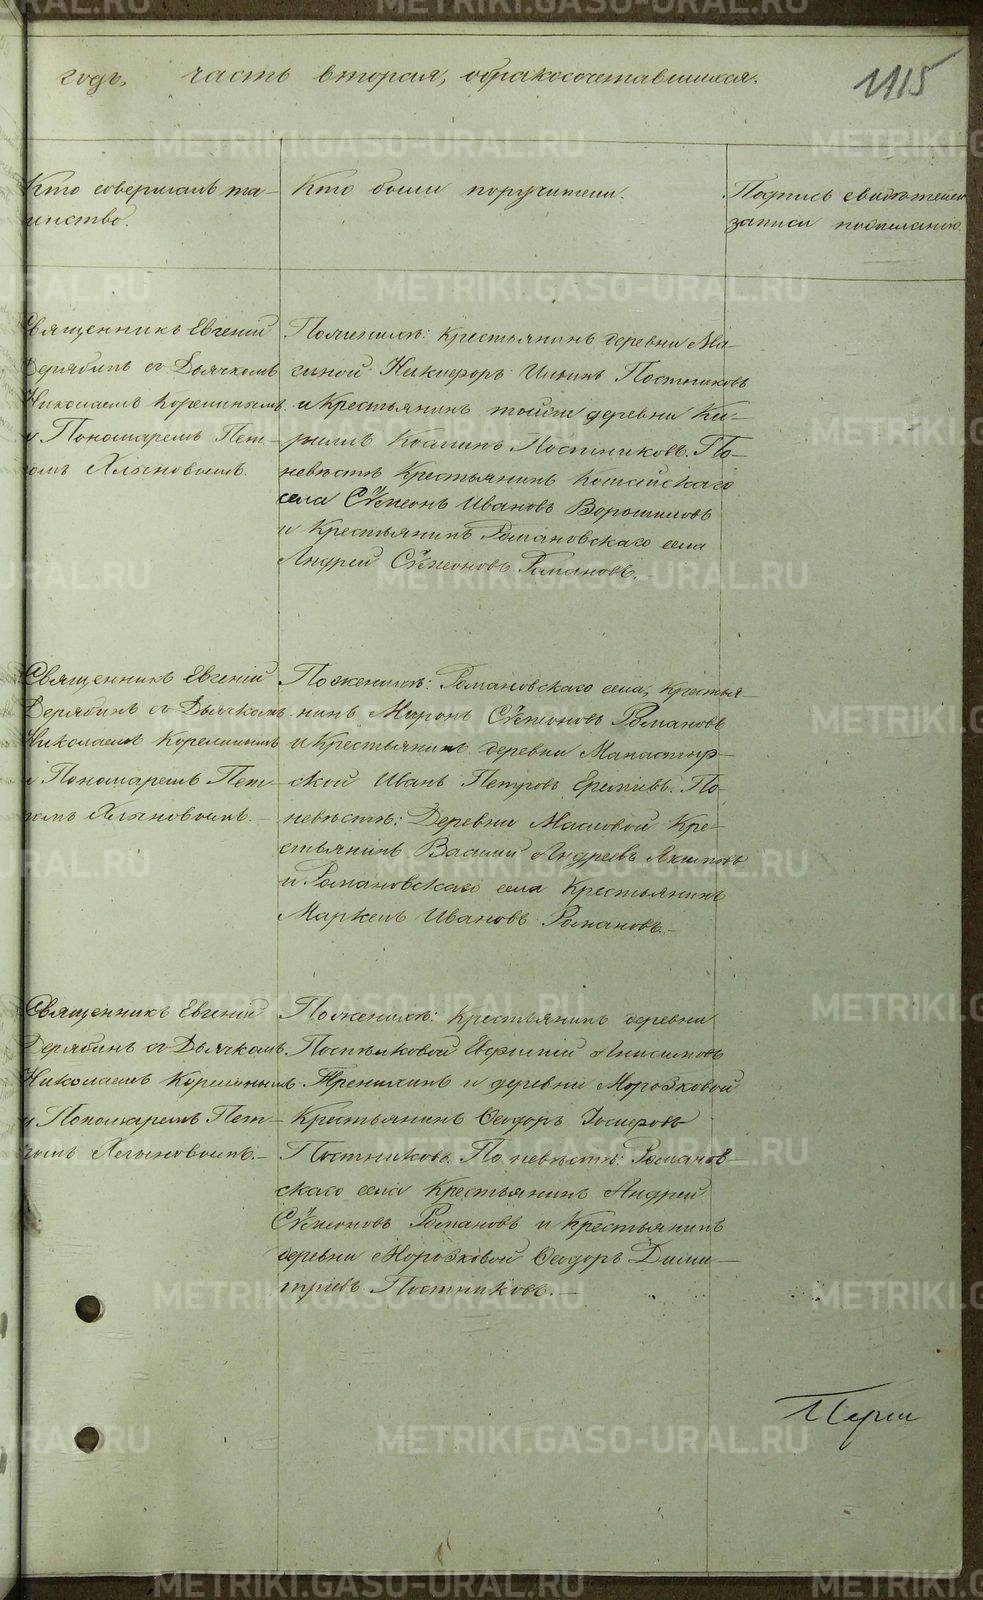 годъ, часть вторая, обракосочетавшихся.
1115
Кто совершалъ та-
инство.
Кто были поручители.
Подпись свидѣтелей
записи по желанію.
Священникъ Евгеній
Дерябинъ съ Дьячкомъ
Николаемъ
и Пономаремъ Пет-
ромъ Хлыновымъ.
По женихѣ: Крестьянинъ деревни
Никифоръ Ильинъ Постниковъ
и Крестьянинъ тойже деревни Ки-
риллъ Постниковъ. По
невѣстѣ Крестьянинъ
села Сѵмеонъ Ивановъ Ворошиловъ
и Крестьянинъ Романовскаго села
Андрей Сѵмеоновъ Романовъ.
Священникъ Евгеній
Дерябинъ съ Дьячкомъ
Николаемъ
и Пономаремъ Пет-
ромъ Хлыновымъ.
По женихѣ: Романовскаго села, Крестья-
нинъ Миронъ Сѵмеоновъ Романовъ
и Крестьянинъ деревни Манастыр-
ской Иванъ Петровъ Еремѣевъ. По
невѣстѣ: Деревни Масловой Кре-
стьянинъ Василій Андреевъ Якимовъ
и Романовскаго села Крестьянинъ
Маркелъ Ивановъ Романовъ.
Священникъ Евгеній
Дерябинъ съ Дьячкомъ
Николаемъ
и Пономаремъ Пет-
ромъ Хлыновымъ.
По женихѣ: Крестьянинъ деревни
Евфимій Анисимовъ
и деревни Морозковой
Крестьянинъ Ѳеодоръ Іосифовъ
Постниковъ. По невѣстѣ: Романов-
скаго села Крестьянинъ Андрей
Сѵмеоновъ Романовъ и Крестьянинъ
деревни Морозковой Ѳеодоръ Дими-
тріевъ Постниковъ.